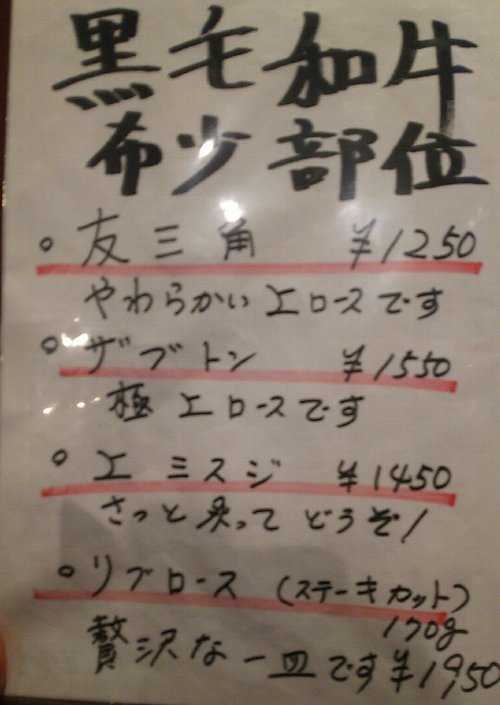 黒毛和牛
希少部位
○友三角 ¥1250
やわらかい上ロースです
○ザブトン ¥1550
極上ロースです
○上ミスジ ¥1450
さっと炙ってどうぞ!
○リブロース (ステーキカット)
170g
贅沢な一皿です¥1950